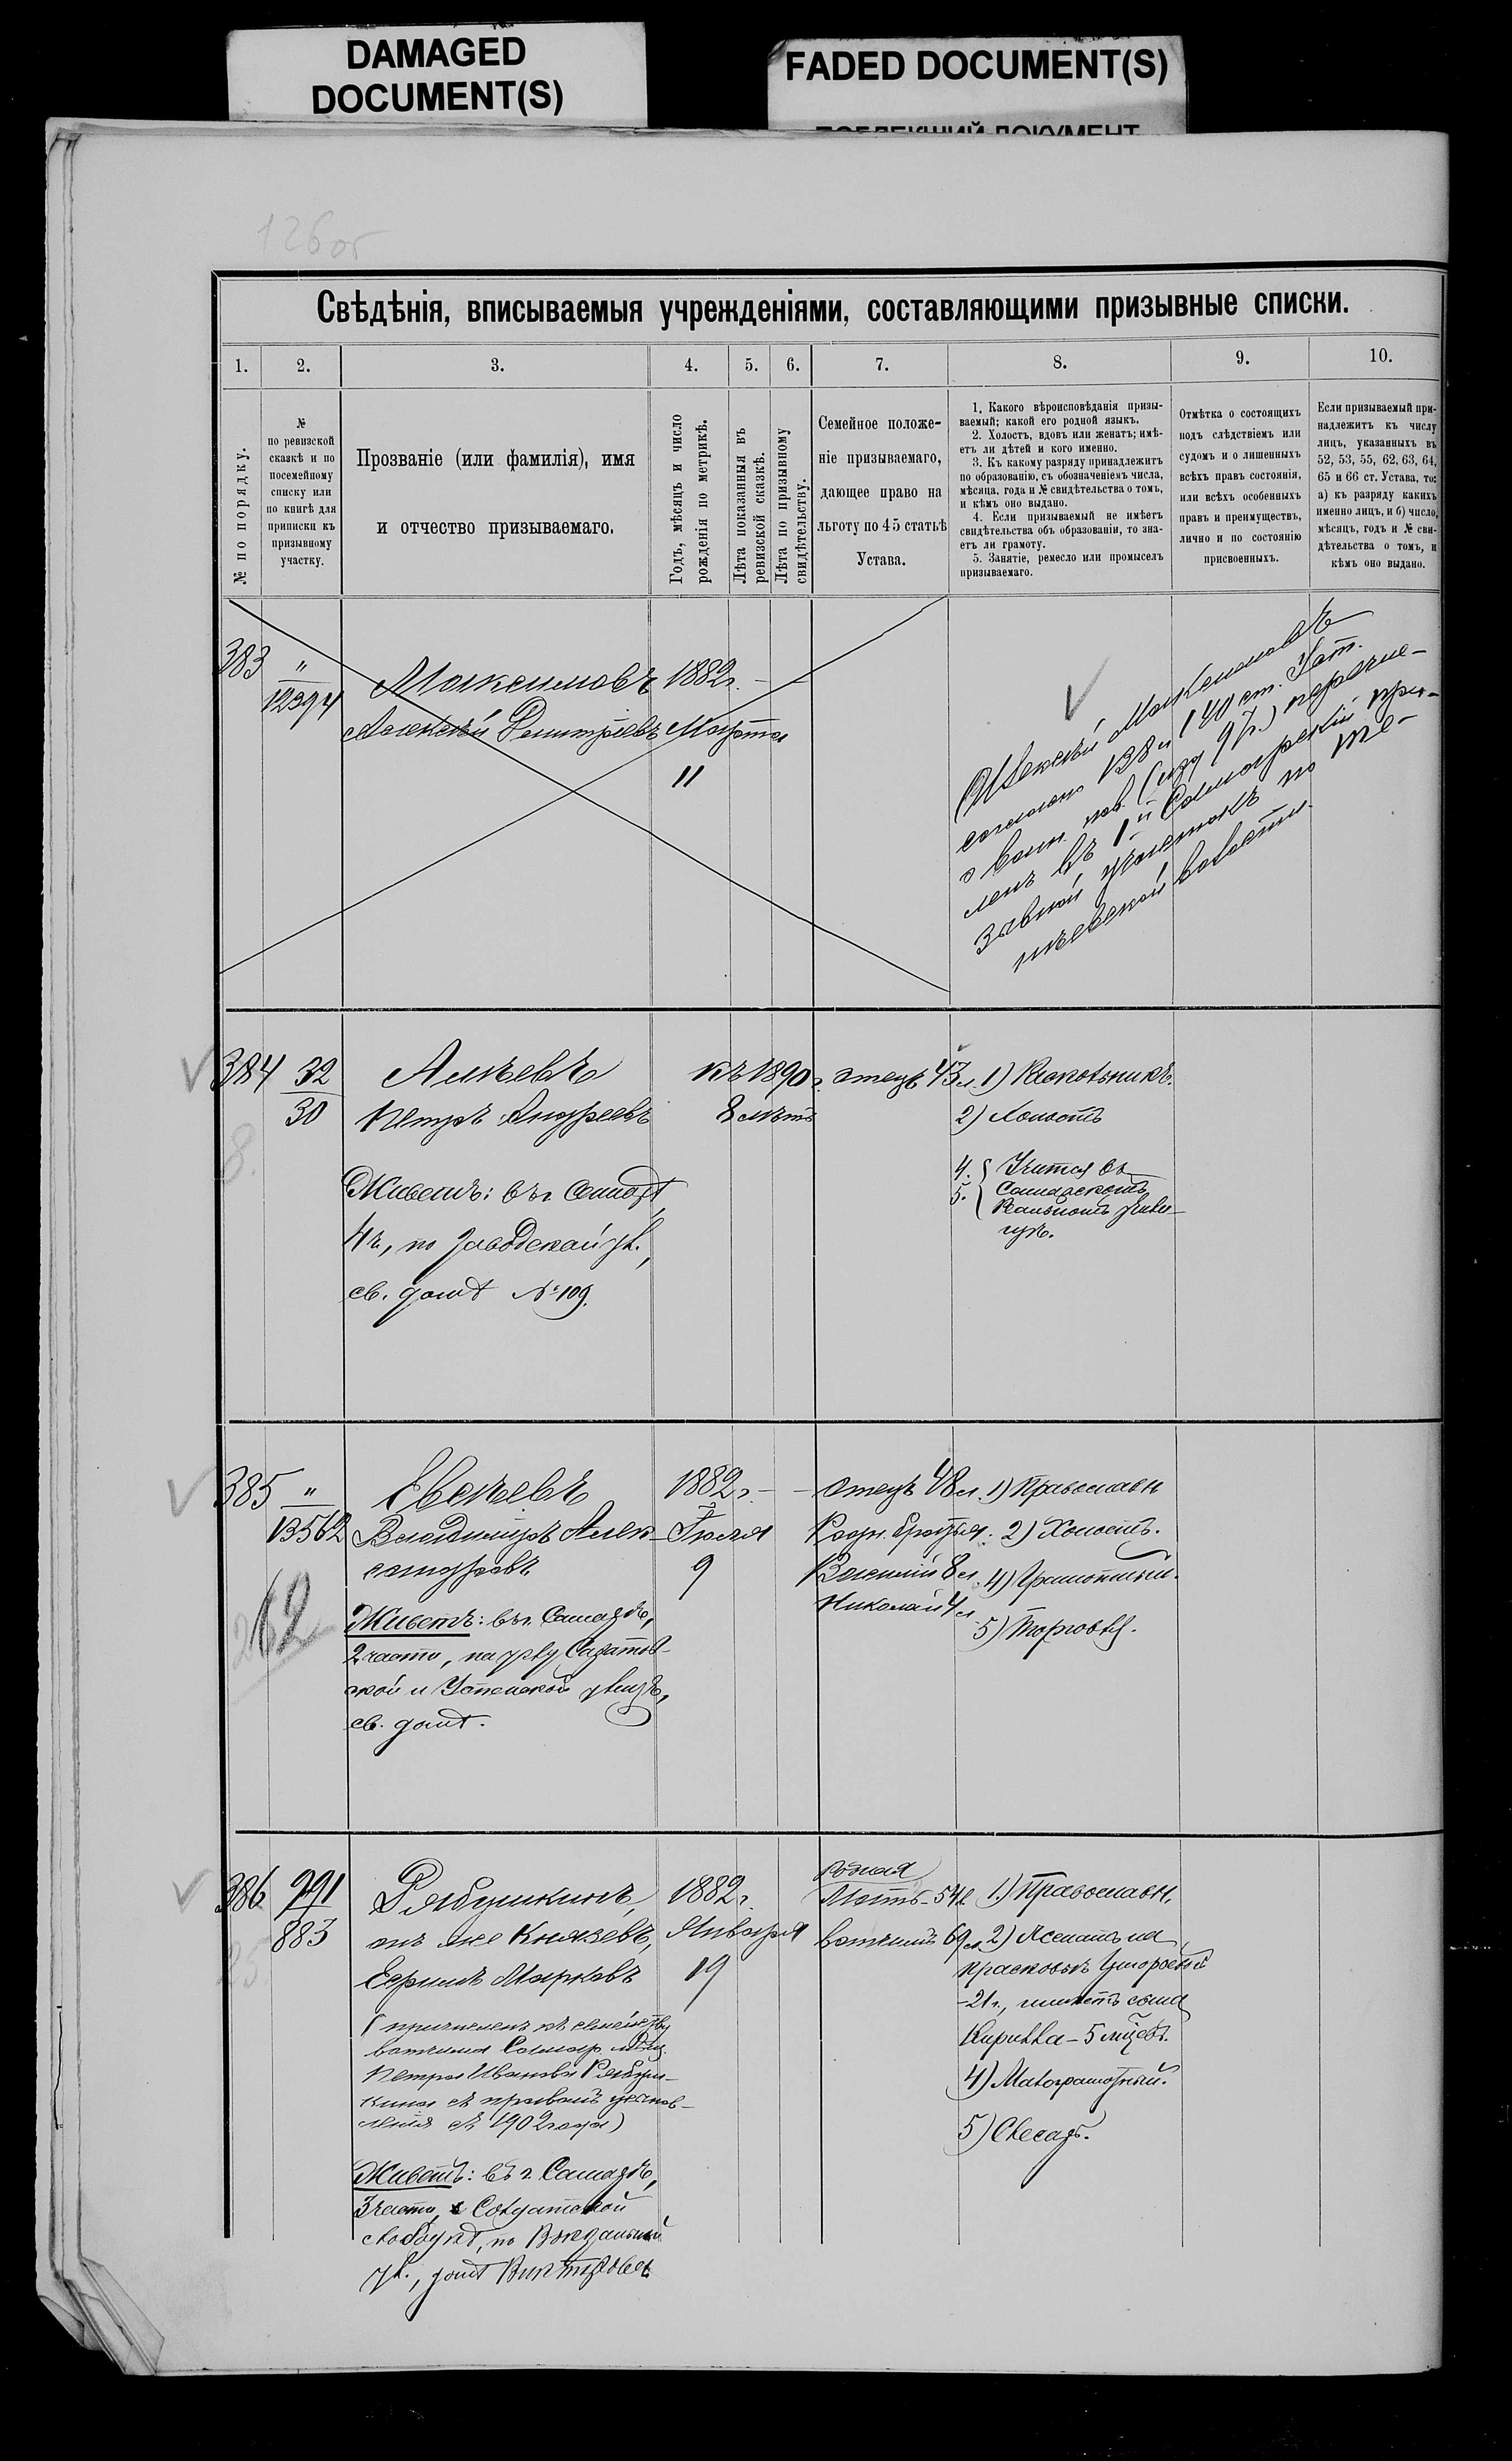 DAMAGED
DOCUMENT(S)
FADED DOCUMENT(S)
126 об
Свѣдѣнія, вписываемыя учрежденіями, составляющими призывные списки.
1. 2. 3. 4. 5. 6. 7. 8. 9. 10.
№ по порядку.
№
по ревизской
сказкѣ и по
посемейному
списку или
по книгѣ для
приписки къ
призывному
участку.
Прозваніе (или фамилія), имя
и отчество призываемаго.
Годъ, мѣсяцъ и число
рожденія по метрикѣ.
Лѣта показанныя въ
ревизской сказкѣ.
Лѣта по призывному
свидѣтельству.
Семейное положе-
ніе призываемаго,
дающее право на
льготу по 45 статьѣ
Устава.
1. Какого вѣроисповѣданія призы-
ваемый; какой его родной языкъ.
2. Холостъ, вдовъ или женатъ; имѣ-
етъ ли дѣтей и кого именно.
3. Къ какому разряду принадлежитъ
по образованію, съ обозначеніемъ числа,
мѣсяца, года и № свидѣтельства о томъ,
и кѣмъ оно выдано.
4. Если призываемый не имѣетъ
свидѣтельства объ образованіи, то зна-
етъ ли грамоту.
5. Занятіе, ремесло или промыселъ
призываемаго.
Отмѣтка о состоящихъ
подъ слѣдствіемъ или
судомъ и о лишенныхъ
всѣхъ правъ состоянія,
или всѣхъ особенныхъ
правъ и преимуществъ,
лично и по состоянію
присвоенныхъ.
Если призываемый при-
надлежитъ къ числу
лицъ, указанныхъ въ
52, 53, 55, 62, 63, 64,
65 и 66 ст. Устава, то:
а) къ разряду какихъ
именно лицъ, и б) число,
мѣсяцъ, годъ и № сви-
дѣтельства о томъ, и
кѣмъ оно выдано.
383
"
12394
Максимовъ
Алексѣй Дмитріевъ
1882 г.
Марта
11
Алексѣй Максимовъ
согласно 138 и 140 ст. Уст.
о воин. пов. (изд 97 г.) перечис-
ленъ въ 1й Самарскій при-
зывной участокъ по
волости.
384
32
30
8.
Алѣевъ
Петръ Андреевъ
Живетъ: въ г. Самарѣ,
4 ч., по Заводской ул.,
св. домѣ № 109.
къ 1890 г.
8 лѣтъ
отецъ 43 л.
1) Раскольникъ.
2) Холостъ
4. 5. Учится въ
Самарскомъ
Реальномъ учили-
щѣ.
385
"
13562
262
Евсѣевъ
Владиміръ Алек-
сандровъ
Живетъ: въ г. Самарѣ,
2 части, на углу Саратов-
ской и Успенской улицъ,
св. домѣ.
1882 г.
Іюля
9
отецъ 48 л.
Родн. братья:
Василій 8 л.
Николай 4 л
1) Православн
2) Холостъ.
4) Грамотный.
5) Торговецъ.
386
991
883
25
Рябушкинъ,
онъ же Князевъ,
Ефимъ Марковъ
(причисленъ къ семейству
вотчима Самар. мѣщ.
Петра Иванова Рябуш-
кина съ правомъ усынов-
ленія съ 1902 года)
Живетъ: въ г. Самарѣ,
3 части, въ Солдатской
слободкѣ, по Вокзальной
ул., домѣ
1882 г.
Января
19
Родная
Мать - 54 л.
вотчимъ 69 л
1) Православн.
2) Женатъ на
Прасковьѣ
- 21 г., имѣетъ сына
Кирилла - 5 мѣсяц.
4) Малограмотный.
5) Слесарь.